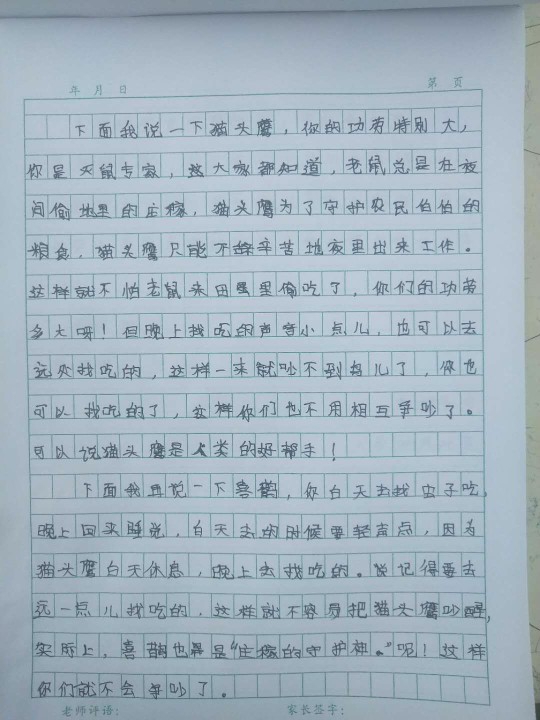 年 月 日 第 页
下面我说一下猫头鹰，你的功劳特别大，
你是灭鼠专家，这大家都知道，老鼠总是在夜
间偷地里的庄稼，猫头鹰为了守护农民伯伯的
粮食，猫头鹰只能不辞辛苦地夜里出来工作。
这样就不怕老鼠来田里偷吃了，你们的功劳
多大呀！但晚上找吃的声音小点儿，也可以去
远处找吃的，这样一来就吵不到鸟儿了，你也
可以找吃的了，这样你们也不用相互争吵了。
可以说猫头鹰是人类的好帮手！
下面我再说一下喜鹊，你白天去找虫子吃，
晚上回来睡觉，白天去的时候要轻声点，因为
猫头鹰白天休息，晚上去找吃的。你记得要去
远一点儿找吃的，这样就不容易把猫头鹰吵醒，
实际上，喜鹊也算是“庄稼的守护神。”呢！这样
你们就不会争吵了。
老师评语： 家长签字：